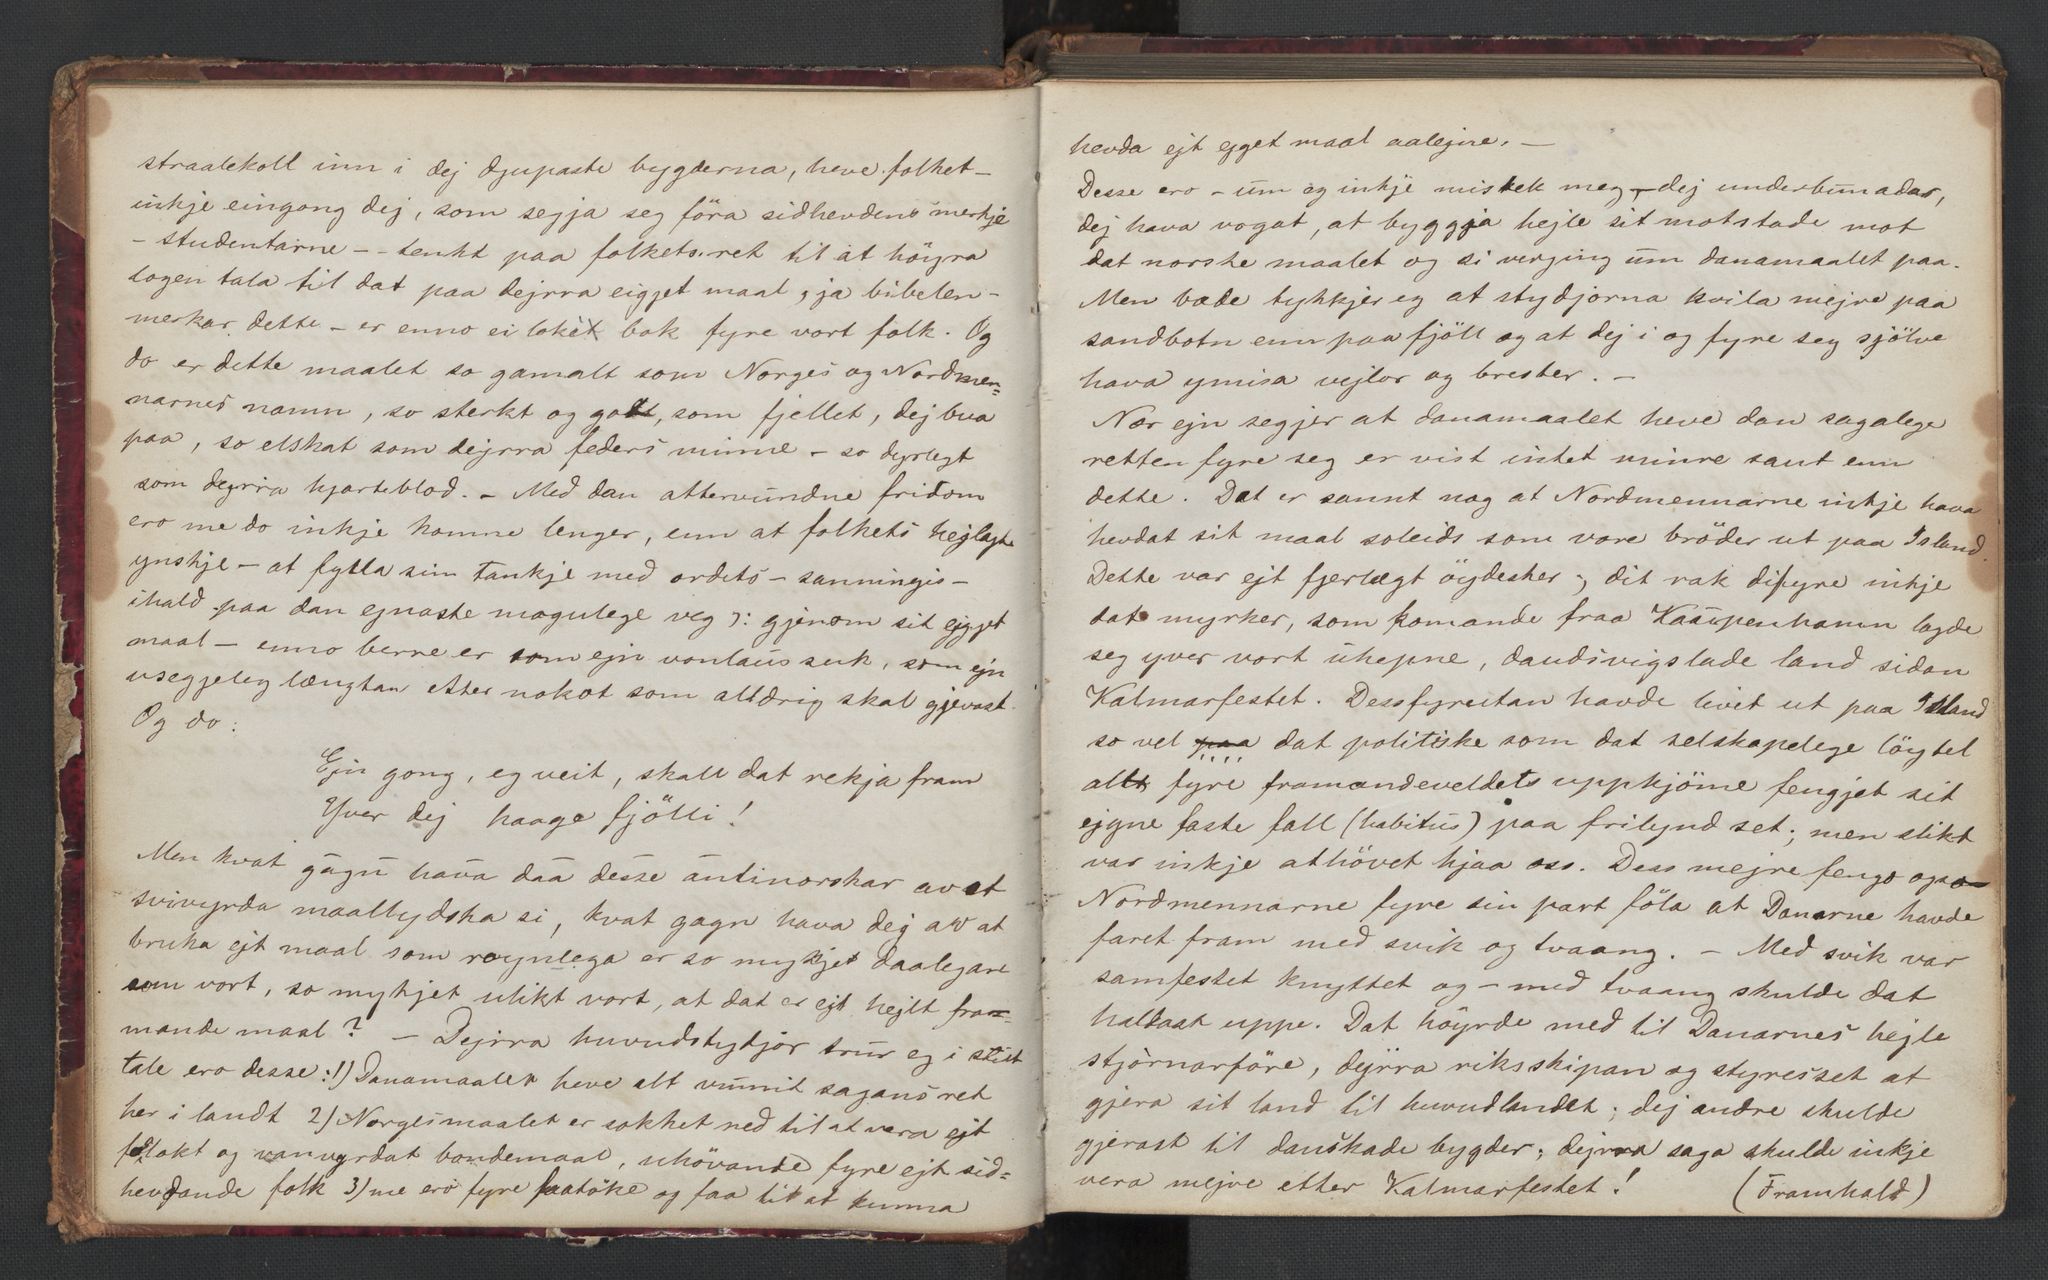 straalekoll inn i dej djupaste bygderna, heve folket –
inkje eingong dej, som segja seg föra sidhevdens merkje
– studentarne – tenkt paa folkets ret til at höyra
logen tala til dat paa dejrra eigjet maal, ja bibelen –
merkar dette – er enno ei loket bok fyre vort folk. Og
do er dette maalet so gamalt som Norges og Nordmen=
narnes namn, so sterkt og godt, som fjellet, dej bua
paa, so elskat som dejrra feders minne – so dyrlegt
som dejrra hjarteblod. – Med dan attervundne fridom
ero me do inkje komne lenger, enn at folkets hejlagte
ynskje – at fylla sin tankje med ordets – sanningis –
ihald paa dan ejnaste mogulege veg ɔ: gjenom sit ejgjet
maal – enno berre er som ejn vonlaus suk, som ejn
usegjeleg længtan etter nokot som alldrig skal gjevast.
Og do:
Ejn gong, eg veit, skall dat rekja fram
Yver dej haage fjölli!
Men kvat gagn hava daa desse antinorskar av at
svivyrda maallydska si, kvat gagn hava dej av at
bruka ejt maal som røynlega er so mykjet daalegare
enn vort, so mykjet ulikt vort, at dat er ejt hejlt fra=
mande maal? – Dejrra huvudstydjor trur eg i stutt
tale ero desse: 1) Danamaalet heve alt vunnit sagans ret
her i landt 2) Norgesmaalet er sokket ned til at vera ejt
flokt og vanvyrdat bondemaal, uhövande fyre ejt sid=
hevdande folk 3) me ero fyre faatöke og faa til at kunna
hevda ejt ejget maal aalejne. –
Desse ero – um eg inkje mistek meg – dej underbunadar,
dej hava vogat, at byggja hejle sit motstade mot
dat norske maalet og si verging um danamaalet paa.
Men bæde tykkjer eg at stydjorna kvila mejre paa
sandbotn enn paa fjöll og at dej i og fyre seg sjölve
hava ymisa vejlor og brester. –
Nær ejn segjer at danamaalet heve dan sagalege
retten fyre seg er vist intet minre sant enn
dette. Dat er sannt nog at Nordmennarne inkje hava
hevdat sit maal soleids som vore bröder ut paa Island.
Dette var ejt fjerlægt öydesker; dit rak difyre inkje
dat myrker, som komande fraa Kaupenhamn lagde
seg yver vort uhepne, daudsvigslade land sidan
Kalmarfestet. Dessfyreutan havde livet ut paa Island
so vel paa dat politiske som dat selskapelege löytel
allt fyre framandeveldets uppkjöme fengjet sit
ejgne faste fall (habitus) paa frilynd set; men slikt
var inkje athövet hjaa oss. Dess mejre fengo ogso
Nordmennarne fyre sin part föla at Danarne havde
faret fram med svik og tvaang. – Med svik var
samfestet knyttet og – med tvaang skulde dat
haldast uppe. Dat höyrde med til Danarnes hejle
stjórnarföre, dejrra riksskipan og styresset at
gjera sit land til huvudlandet; dej andre skulde
gjerast til danskade bygder; dejrra saga skulde inkje
vera mejre etter Kalmarfestet! (Framhald)